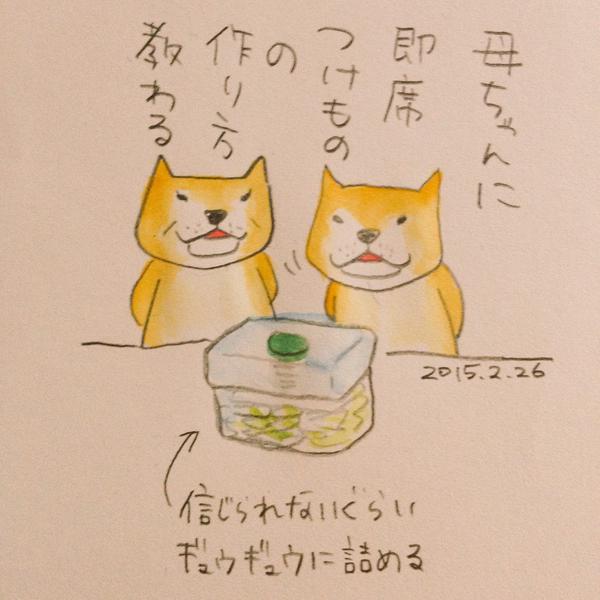 母ちゃんに
即席
つけもの
の
作り方
教わる
2015.2.26
信じられないぐらい
ギュウギュウに詰める